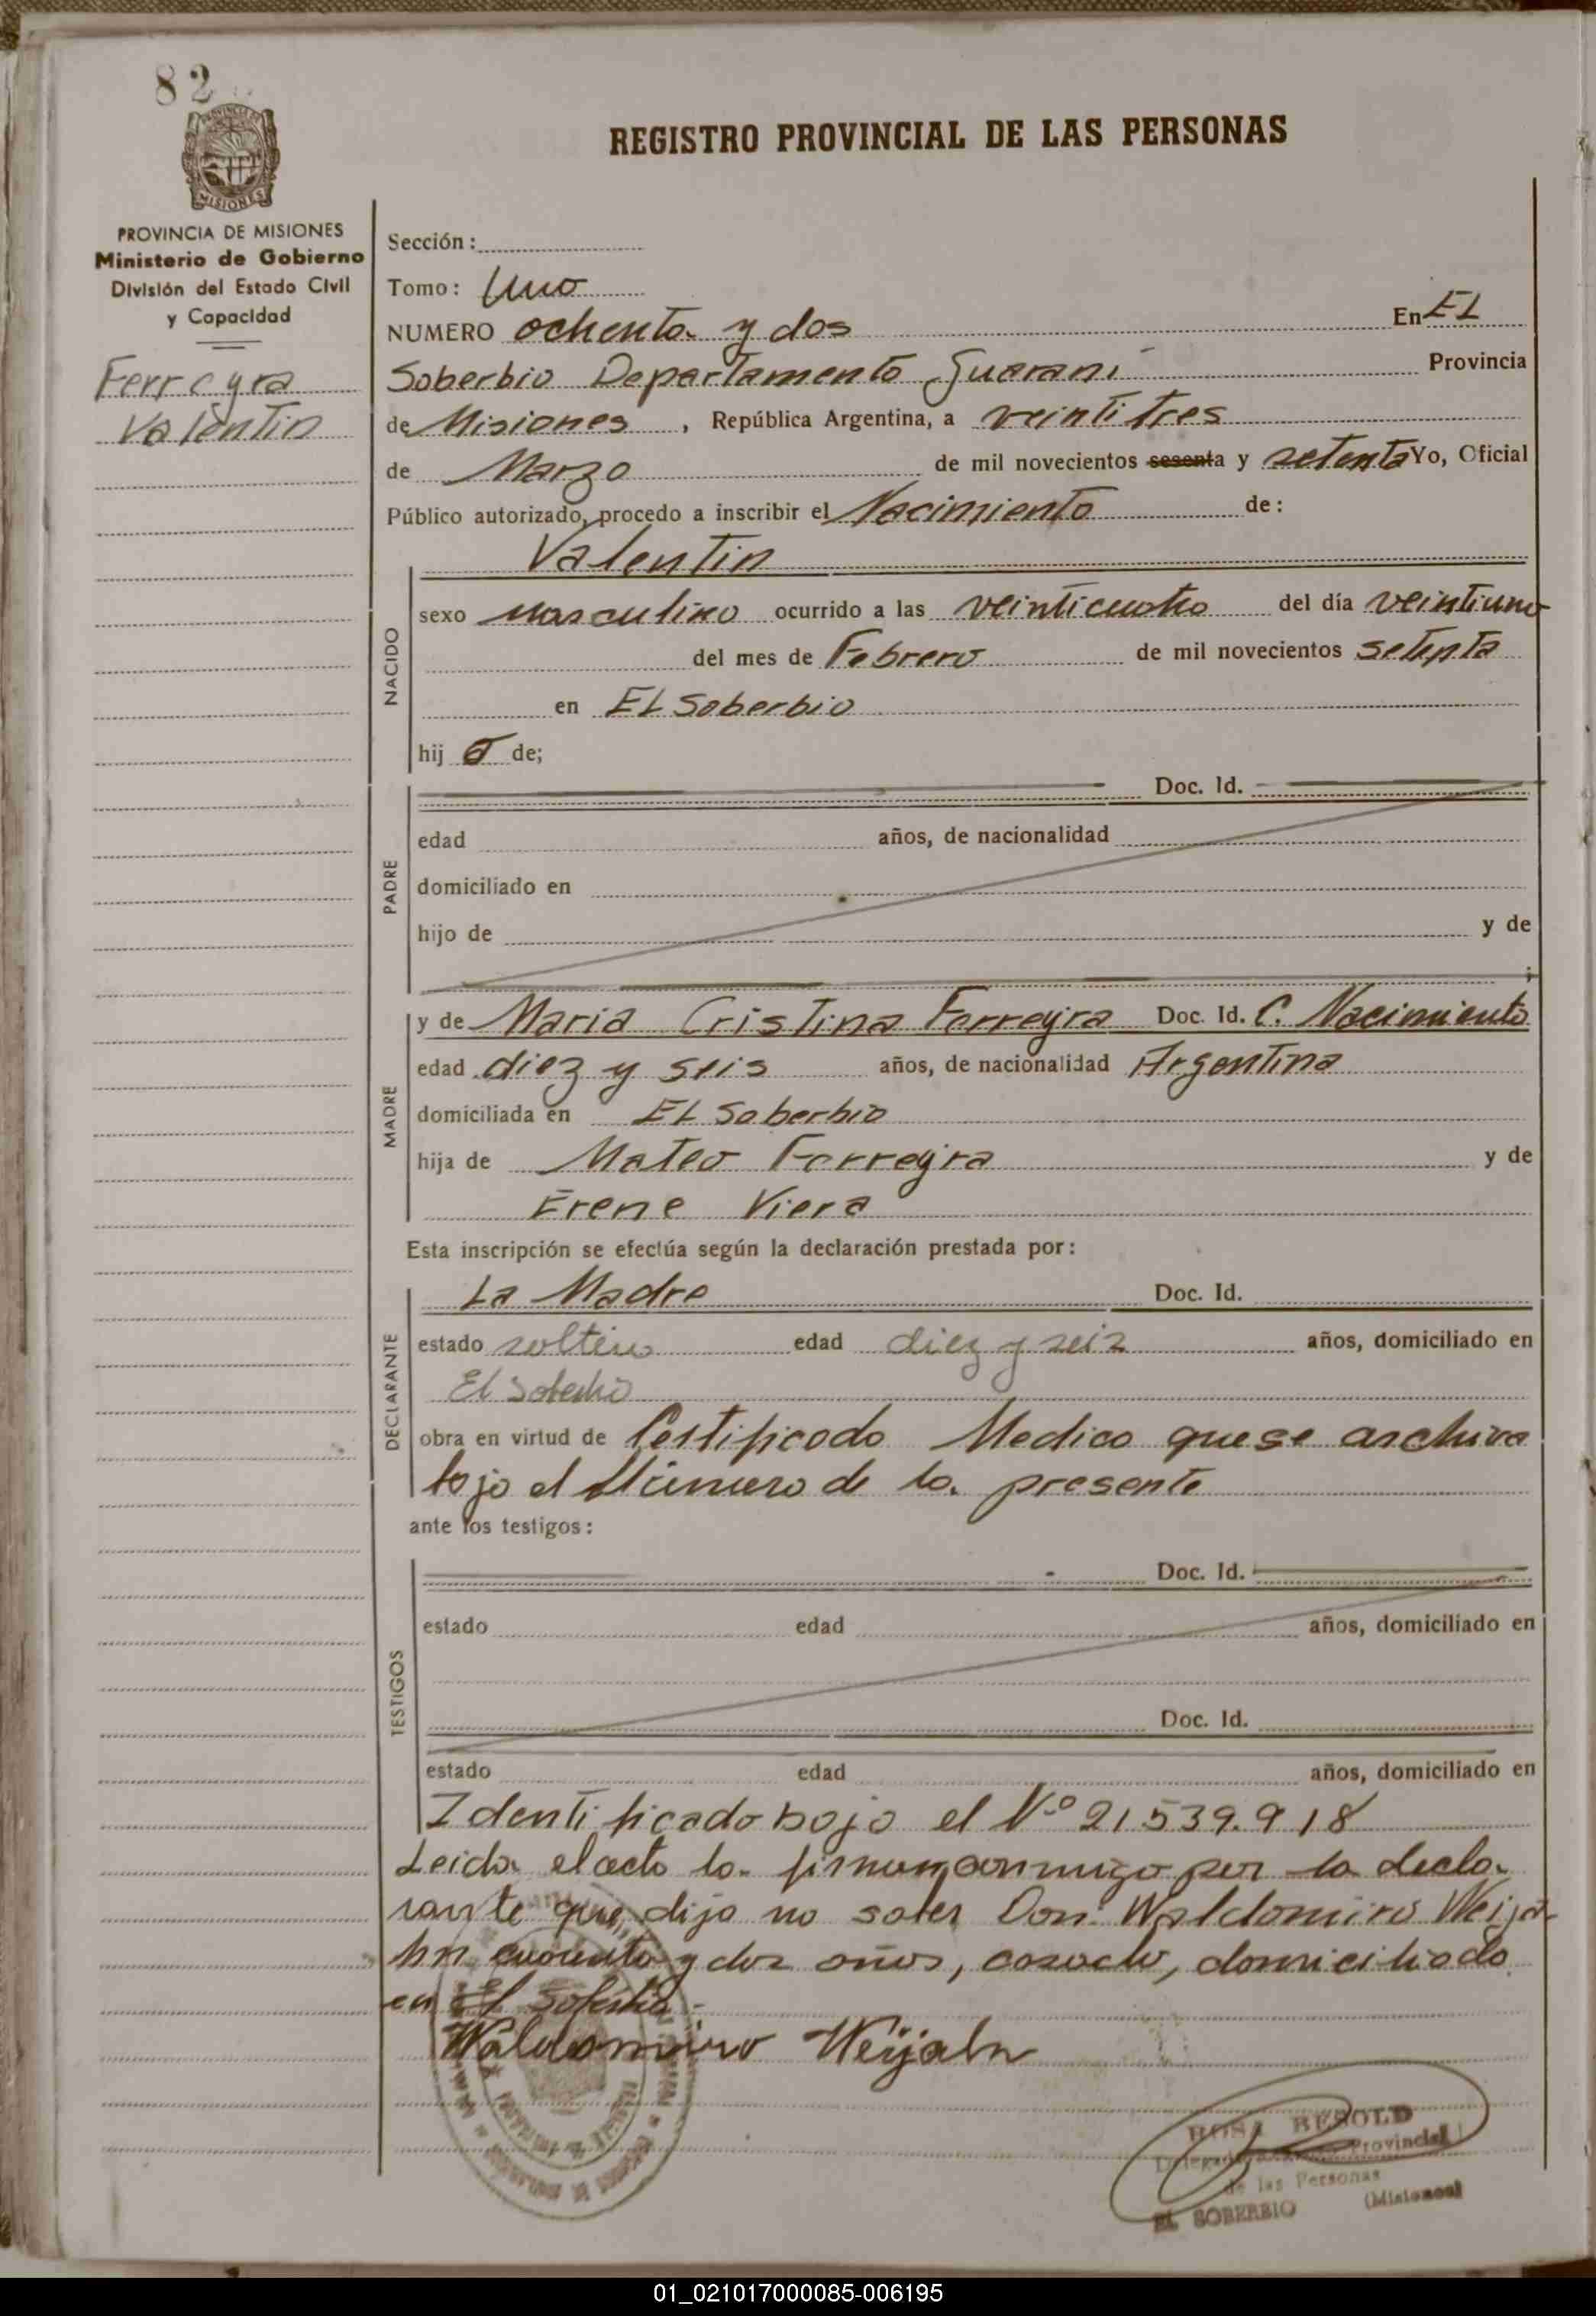 82
MISIONES
REGISTRO PROVINCIAL DE LAS PERSONAS
PROVINCIA DE MISIONES
Ministerio de Gobierno
División del Estado Civil
y Capacidad
Ferreyra
Valentin
Sección:
Tomo: Uno
NUMERO ochenta y dos En EL
Soberbio Departamento Guarani Provincia
de Misiones, República Argentina, a veintitres
de Marzo de mil novecientos sesenta y setenta Yo, Oficial
Público autorizado, procedo a inscribir el Nacimiento de:
Valentin
NACIDO
sexo masculino ocurrido a las veinticuatro del día veintiuno
del mes de Febrero de mil novecientos setenta
en EL Soberbio
hij o de;
PADRE
Doc. Id.
edad años, de nacionalidad
domiciliado en
hijo de y de
;
MADRE
y de Maria Cristina Ferreyra Doc. Id. C. Nacimiento
edad diez y seis años, de nacionalidad Argentina
domiciliada en EL Soberbio
hija de Mateo Ferreyra y de
Erene Viera
Esta inscripción se efectúa según la declaración prestada por:
DECLARANTE
La Madre Doc. Id.
estado edad diez y seis años, domiciliado en
El Soberbio
obra en virtud de Certificado Medico que se archiva
bajo el Número de la presente
ante los testigos:
TESTIGOS
Doc. Id.
estado edad años, domiciliado en
Doc. Id.
estado edad años, domiciliado en
Identificado bajo el Nº 21.539.918
Leida el acta la firman conmigo por la decla-
rante que dijo no saber Don: Waldomiro Weija-
hn cuarenta y dos años, casado, domiciliado
en El Soberbio.-
Waldomiro Weijahn
ROSA BESOLD
Provincial
de las Personas
EL SOBERBIO (Misiones)
01_021017000085-006195